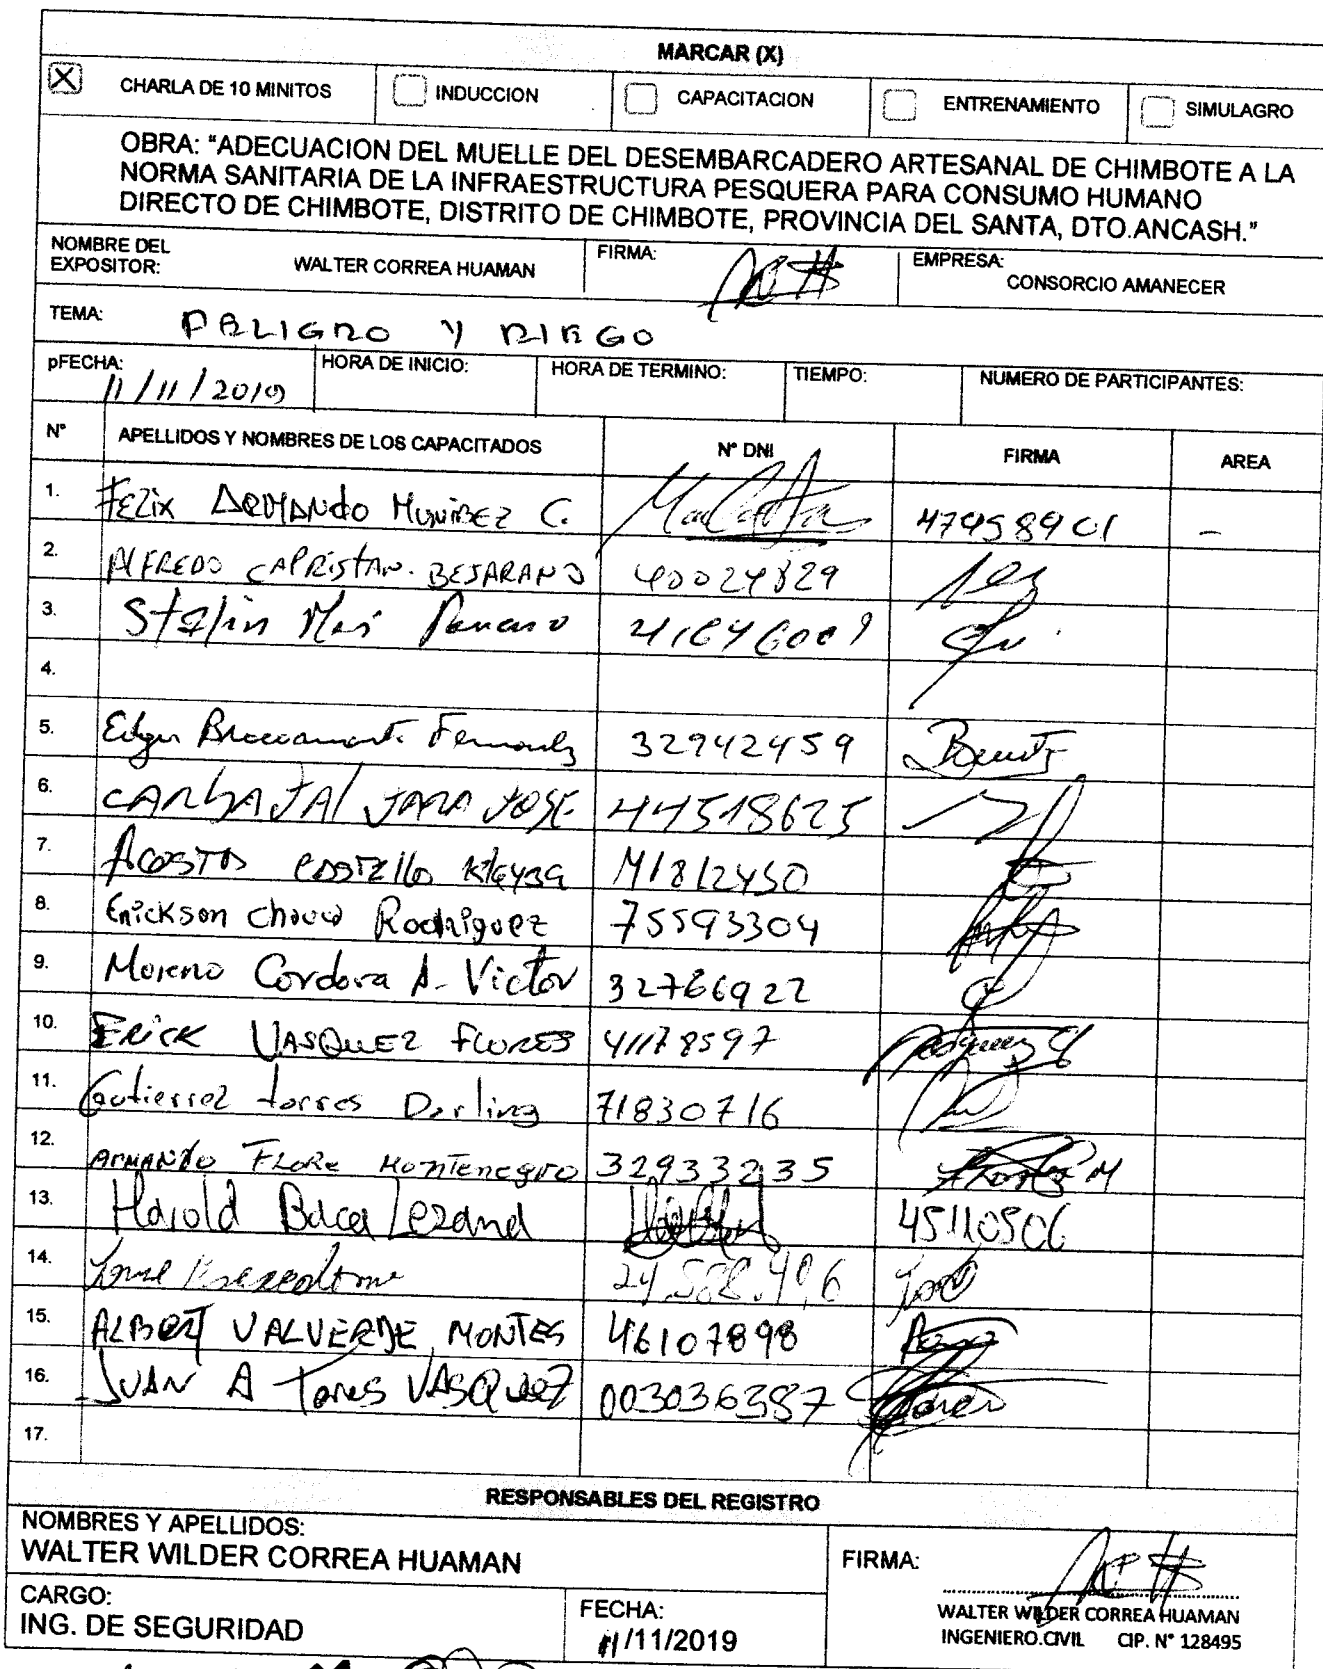 MARCAR (X)
X CHARLA DE 10 MINITOS INDUCCION CAPACITACION ENTRENAMIENTO SIMULAGRO
OBRA: "ADECUACION DEL MUELLE DEL DESEMBARCADERO ARTESANAL DE CHIMBOTE A LA
NORMA SANITARIA DE LA INFRAESTRUCTURA PESQUERA PARA CONSUMO HUMANO
DIRECTO DE CHIMBOTE, DISTRITO DE CHIMBOTE, PROVINCIA DEL SANTA, DTO.ANCASH."
NOMBRE DEL
EXPOSITOR: WALTER CORREA HUAMAN FIRMA: EMPRESA: CONSORCIO AMANECER
TEMA: PELIGRO Y RIEGO
pFECHA: HORA DE INICIO: HORA DE TERMINO: TIEMPO: NUMERO DE PARTICIPANTES:
11/11/2019
N° APELLIDOS Y NOMBRES DE LOS CAPACITADOS N° DNI FIRMA AREA
1. FELix ARMANDO C. 47958901 -
2. AlFREDO CAPRISTAN. BEJARANO 40024829
3. Stalin
4.
5. Edgar 32942459
6. CARBAJAl JARA JOSE 44518625
7. ACOSTA 41812450
8. Erickson Rodriguez 75593304
9. Moreno Cordova A. Victor 32766922
10. ERICK VASQUEZ FLORES 41178597
11. Gutierrez torres Darling 71830716
12. ARMANDO FLORE MONTENEGRO 32933235
13. Harold Baca Lezana 45110506
14.
15. ALBERT VALVERDE MONTES 46107898
16. JUAN A Torres VASQUEZ 003036387
17.
RESPONSABLES DEL REGISTRO
NOMBRES Y APELLIDOS:
WALTER WILDER CORREA HUAMAN
FIRMA:
CARGO:
ING. DE SEGURIDAD
FECHA:
11/11/2019
WALTER WILDER CORREA HUAMAN
INGENIERO.CIVIL CIP. N° 128495